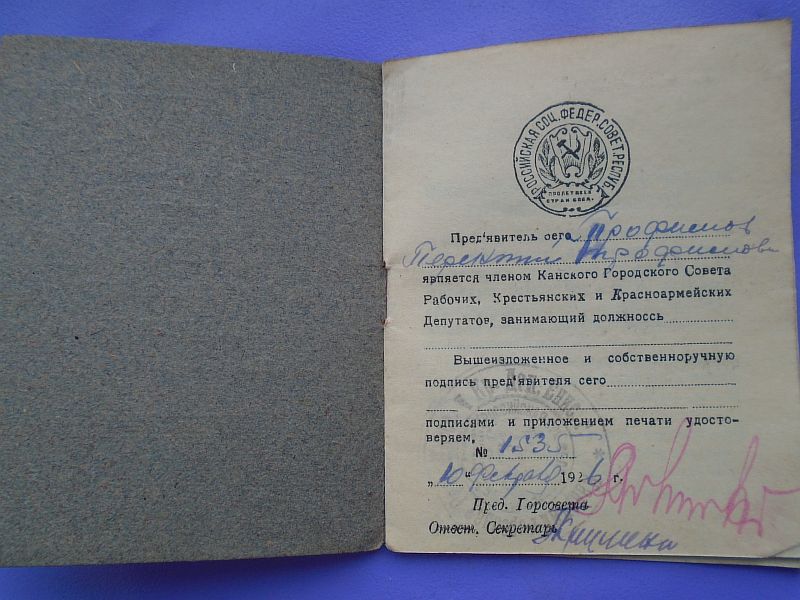 РОССИЙСКАЯ СОЦ. ФЕДЕР. СОВЕТ. РЕСПУБ
ПРОЛЕТАРИИ
Пред'явитель сего Трофимов
является членом Канского Городского Совета
Рабочих, Крестьянских и Красноармейских
Депутатов, занимающий должноссь
Вышеизложенное и собственноручную
подпись пред'явителя сего
подписями и приложением печати удосто-
веряем.
№ 1535
„10" февраля 1926 г.
Пред. Горсовета
Ответ. Секретарь